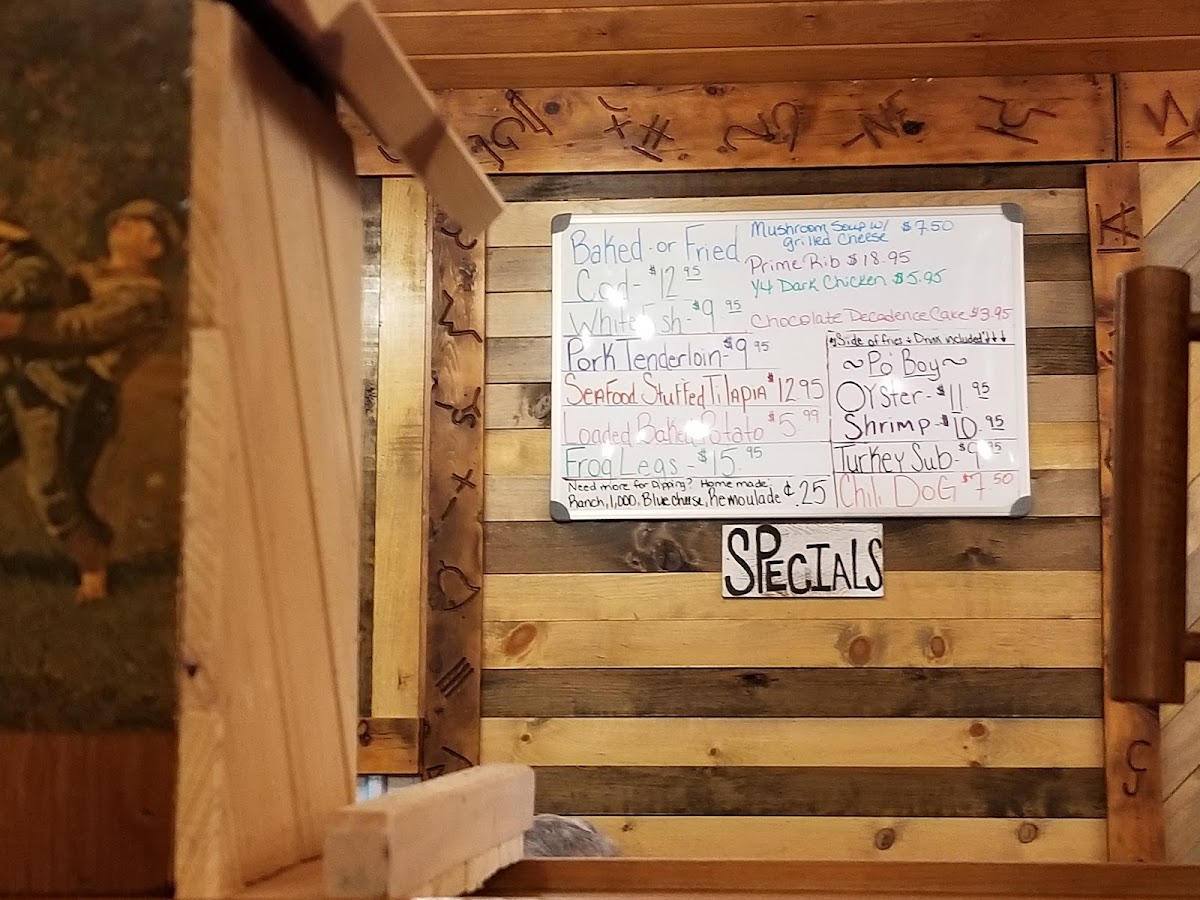 Baked or Fried
Cod - $12.95
White Fish - $9.95
Pork Tenderloin - $9.95
Seafood Stuffed Tilapia $12.95
Loaded Baked Potato $5.99
Frog Legs - $15.95
Need more for Dipping? Home made:
Ranch, 1,000, Blue cheese, Remoulade ¢.25
Mushroom Soup w/ $7.50
grilled Cheese
Prime Rib $18.95
1/4 Dark Chicken $5.95
Chocolate Decadence Cake $3.95
Side of fries + Drink included ↓↓↓
~Po' Boy~
Oyster - $11.95
Shrimp - $10.95
Turkey Sub - $9.95
Chili Dog $7.50
SPECIALS